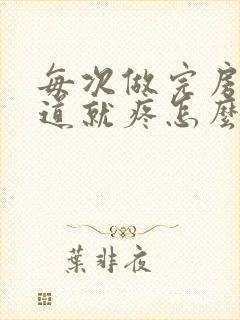 每次做完房
道就疼怎麼
葉非夜